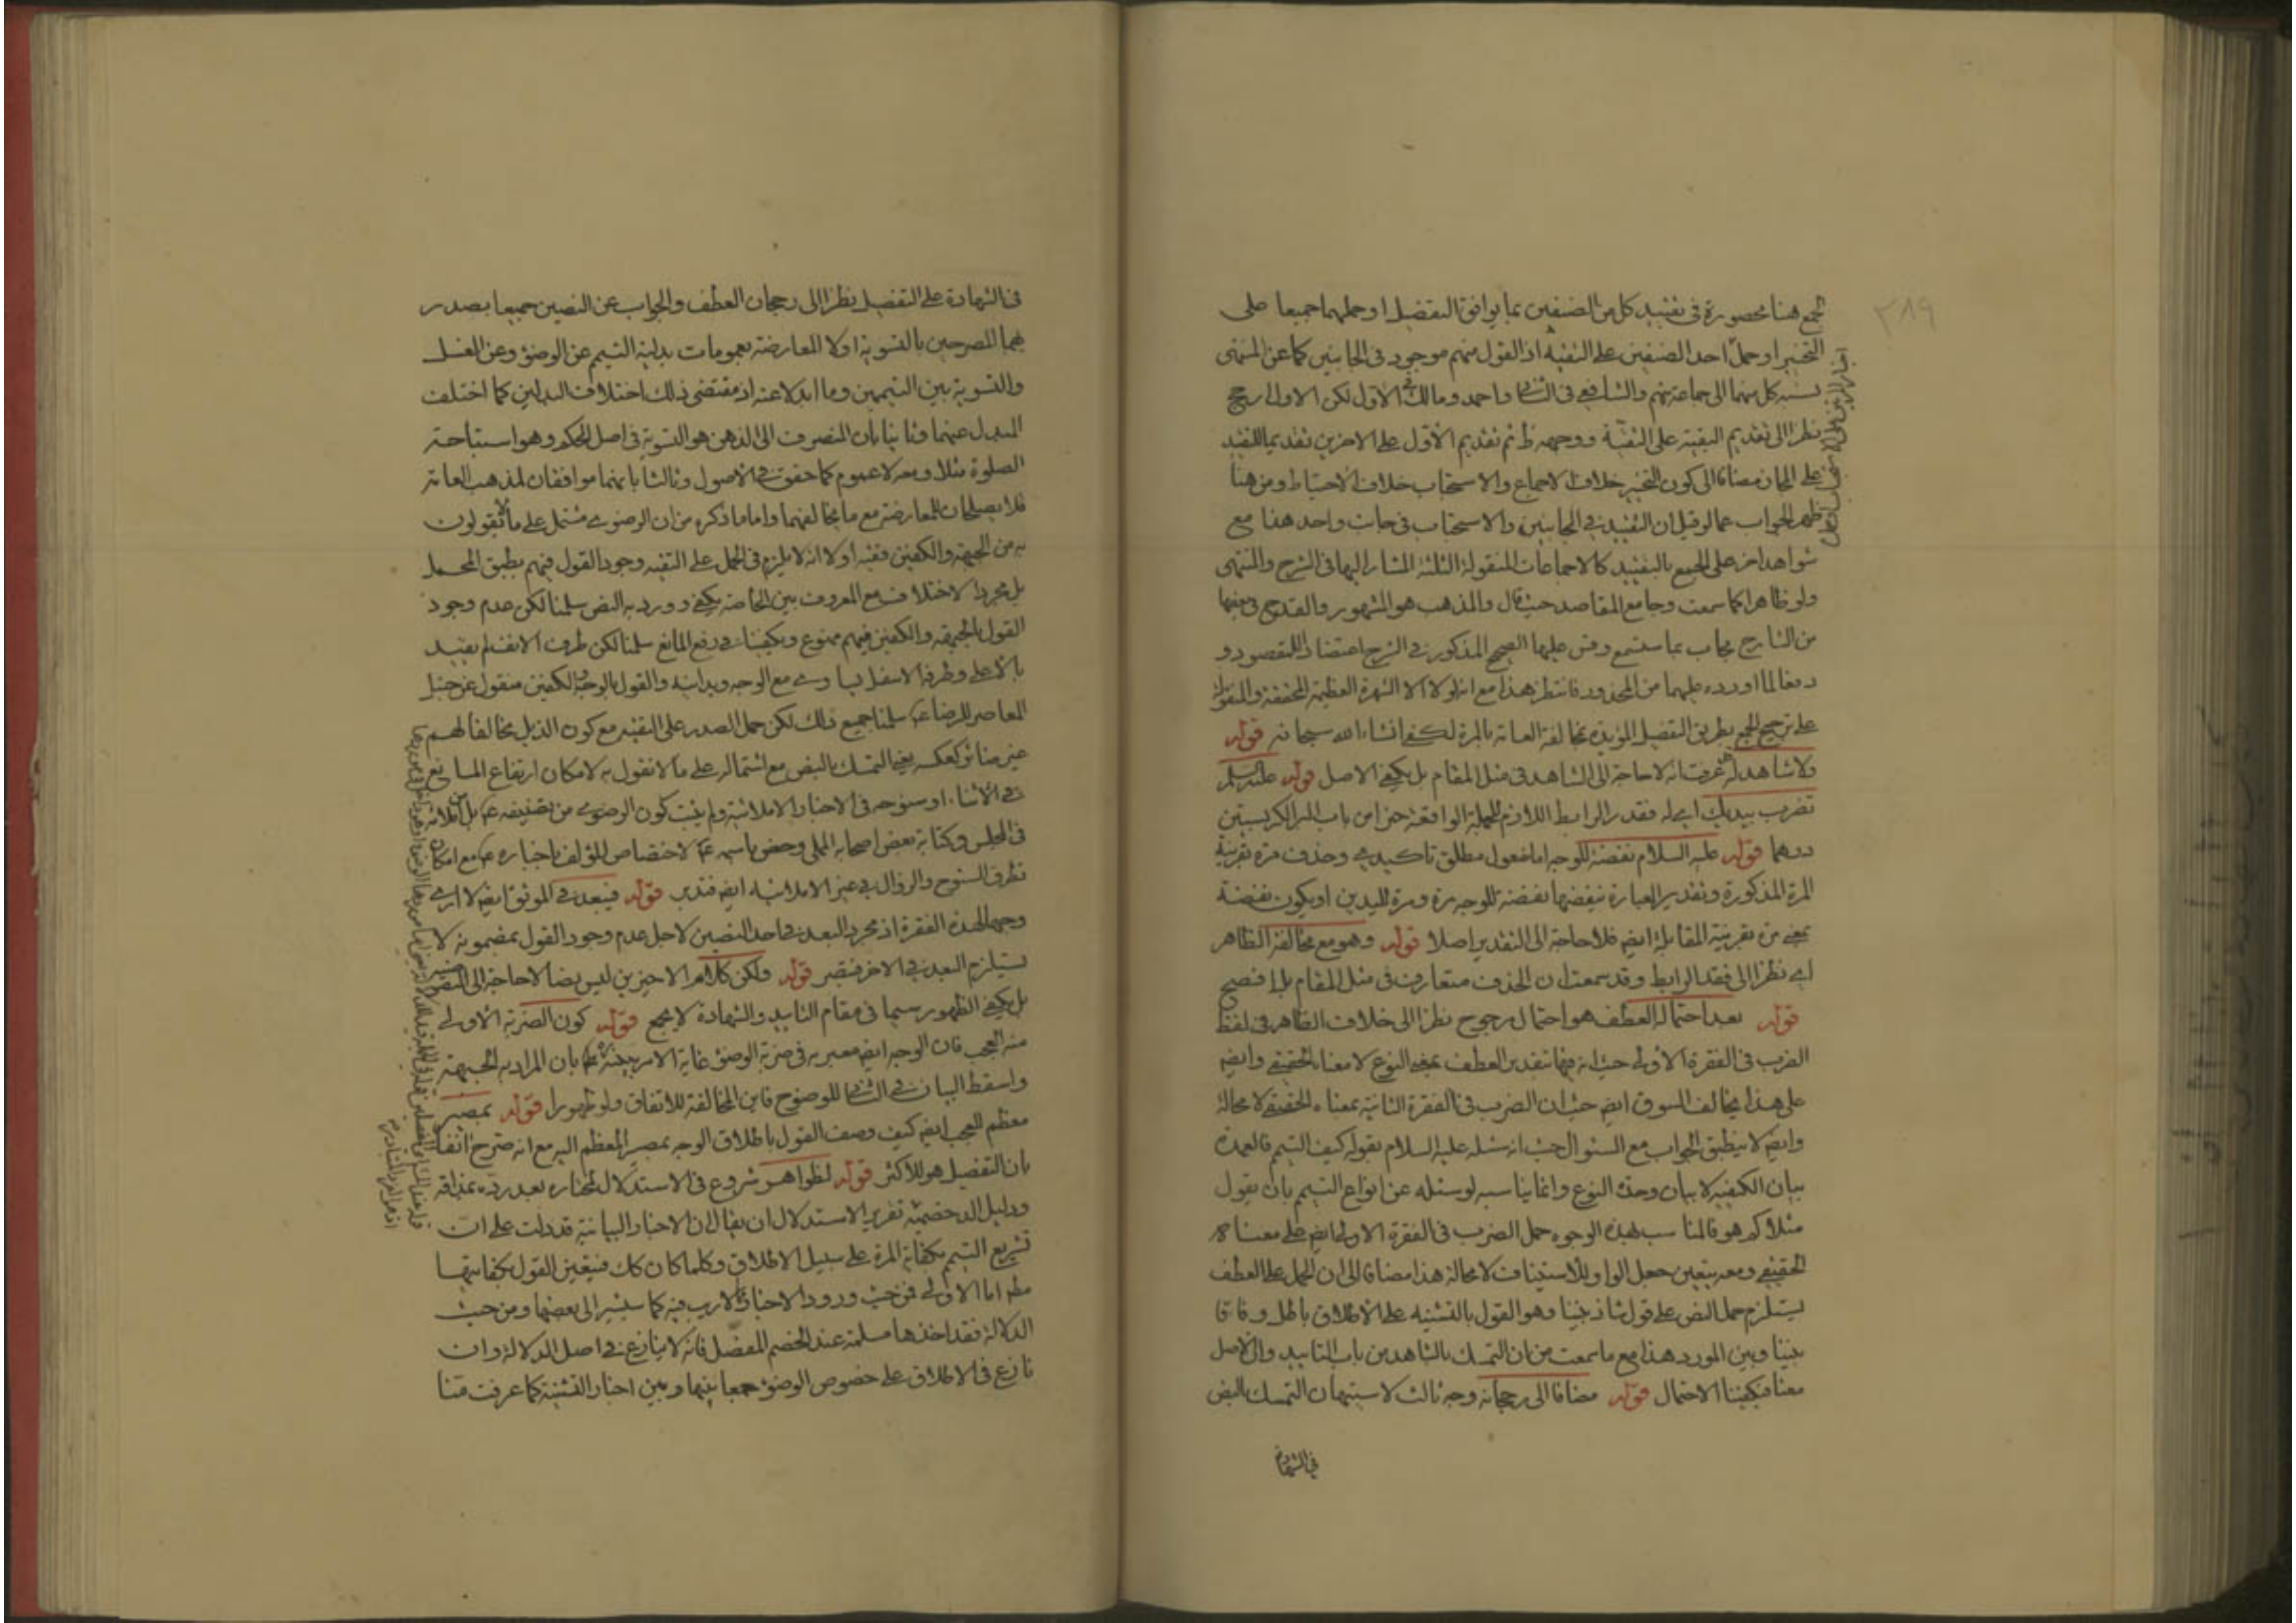 ٣٨٩
الجمع هنا محصورة فى تقييد كل من الصنفين بما يوافق التفضيل او حملهما جميعا على
التخيير او حمل احد الصنفين على التقية اذ القول منهم موجود فى الجانبين كما عن المنتهى
نسبة كل منهما الى جماعة منهم والشافعى فى الثانى واحمد ومالك فى الاول لكن الاول ارجح
نظرا الى تقديم التقييد على التقية ووجهه ظ ثم تقديم الاول على الاخرين تقديما للتقييد
على المجاز مضافا الى كون التخيير خلاف الاجماع والاستحباب خلاف الاحتياط ومن هنا
ظهر الجواب عما لو قيل ان التقييد فى الجانبين والاستحباب فى جانب واحد هذا مع
شواهد اخر على الجمع بالتقييد كالاجماعات المنقولة الثلثة المشار اليها فى الشرح والمنتهى
ولو ظاهرا كما سمعت وجامع المقاصد حيث قال والمذهب هو المشهور والقدح فى بعضها
من الشارح مجاب بما ستسمع وقس عليها الصحيح المذكور فى الشرح اعتضادا للمقصود و
دفعا لما اورده عليهما من المحذور فانتظر هذا مع انه لولا الا الشهرة العظيمة المحققة والمنقولة
على ترجيح الجمع بطريق التفصيل المؤيدة بمخالفة العامة بالمرة لكفى انشاء الله سبحانه قوله
ولا شاهد له عرفت انه لا حاجة الى الشاهد فى مثل المقام بل يكفى الاصل قوله عليه السلم
تضرب بيديك اى له فقدر الرابط اللازم للجملة الواقعة خبرا من باب البر الكر بستين
درهما قوله عليه السلام نفضة للوجه اما مفعول مطلق تاكيدى وحذف مرة بقرينة
المرة المذكورة وتقدير العبارة تنفضها نفضة للوجه مرة ومرة لليدين او يكون نفضة
بمعنى مرة بقرينة المقابلة ايضا فلا حاجة الى التقدير اصلا قوله وهو مع مخالفة الظاهر
اى نظرا الى فقد الرابط وقد سمعت ان الحذف متعارف فى مثل المقام بل افصح
قوله بعد احتماله العطف هو احتمال مرجوح نظرا الى خلاف الظاهر فى لفظ
الضرب فى الفقرة الاولى حيث انه فيها بتقدير العطف بمعنى النوع لا معناه الحقيقى وايضا
على هذا يخالف السوق ايضا حيث ان الضرب فى الفقرة الثانية بمعناه الحقيقى لا محالة
وايضا لا ينطبق الجواب مع السئوال حيث انه سئله عليه السلام بقوله كيف التيمم فالعمدة
بيان الكيفية لا بيان وحدة النوع وانما يناسبه لو سئله عن انواع التيمم بان يقول
مثلا كم هو فالمناسب لهذه الوجوه حمل الضرب فى الفقرة الاولى ايضا على معناه
الحقيقى ومعه يتعين جعل الواو للاستيناف لا محالة هذا مضافا الى ان الحمل على العطف
يستلزم حمل النص على قول شاذ بيننا وهو القول بالتثنية على الاطلاق باطل وفاقا
بيننا وبين المورد هذا مع ما سمعت من ان التمسك بالشاهد من باب التاييد والاصل
معنا فيكفينا الاحتمال قوله مضافا الى رجحانه وجه ثالث لاستيهان التمسك بالنص
فى الشهادة
فى الشهادة على التفصيل نظرا الى رجحان العطف والجواب عن النصين جميعا بصدر
هما المصرحين بالتسوية اولا المعارضة بعمومات بدلية التيمم عن الوضوء وعن الغسل
والتسوية بين التيممين وما ابدلا عنه اذ مقتضى ذلك اختلاف البدلين كما اختلف
المبدل عنهما وثانيا بان المنصرف الى الذهن هو التسوية فى اصل الحكم وهو استباحة
الصلوة مثلا ومعه لا عموم كما حقق فى الاصول وثالثا بانهما موافقان لمذهب العامة
فلا يصلحان للمعارضة مع ما يخالفهما واما ما ذكره من ان الرضوى مشتمل على ما لا يقولون
به من الجبهة والكفين ففيه اولا انه لا يلزم فى الحمل على التقية وجود القول فيهم يطبق المحمل
بل مجرد الاختلاف مع المعروف بين الخاصة يكفى وورد به النص سلمنا لكن عدم وجود
القول بالجبهة والكفين فيهم ممنوع ويكفينا فى رفع المانع سلمنا لكن طرف الانف لم يقيد
بالاعلى وطرفه الاسفل يساوى مع الوجه وبدايته والقول بالوجه والكفين منقول عن حنبل
المعاصر للرضا ع سلمنا جميع ذلك لكن حمل الصدر على التقية مع كون الذيل مخالفا لهم
غير ضائر كعكسه يعنى التمسك بالبعض مع اشتماله على ما لا نقول به لامكان ارتفاع المانع
فى الاثناء او سنوحه فى الاخبار الاملائية ولم يثبت كون الرضوى من تصنيفه ع بل من املائه
فى المجلس وكتابة بعض اصحابه المملى وخص باسمه ع لاختصاص المؤلف باخباره ع مع امكان
تطرق السنوح والزوال فى غير الاملائية ايضا فتدبر قوله فيبعد فى الموثق ايضا لا ارى
وجها لهذه الفقرة اذ مجرد البعد فى احد النصين لاجل عدم وجود القول بمضمونه لا
يستلزم البعد فى الاخر فتبصر قوله ولكن كلام الاخيرين ليس نصا لا حاجة الى التنصيص
بل يكفى الظهور سيما فى مقام التاييد والشهادة لا بجمع قوله كون الضربة الاولى
منه العجب فان الوجه ايضا معبر به فى ضربة الوضوء غاية الامر بان المراد به الجبهة
واسقط البيان فى الثانى للوضوح فاين المخالفة للاتفاق ولو ظهورا قوله بمصير
معظم العجب ايضا كيف وصف القول باطلاق الوجه بمصير المعظم اليه مع انه صرح انفا
بان التفصيل هو للاكثر قوله لظواهر شروع فى الاستدلال لمختاره بعد رده بمذاقه
ودليل الد خصمه تقرير الاستدلال ان يقال ان الاخبار البيانية قد دلت على ان
تشريع التيمم بكفاية المرة على سبيل الاطلاق وكلما كان كك فيتعين القول بكفايتها
مط اما الاولى فمن حيث ورود الاخبار لا ريب فيه كما سيشير الى بعضها ومن حيث
الدلالة فقد اخذها مسلمة عند الخصم المفصل فانه لا ينازع فى اصل الدلالة وان
نازع فى الاطلاق على خصوص الوضوء جمعا بينها وبين اخبار التثنية كما عرفت متنا